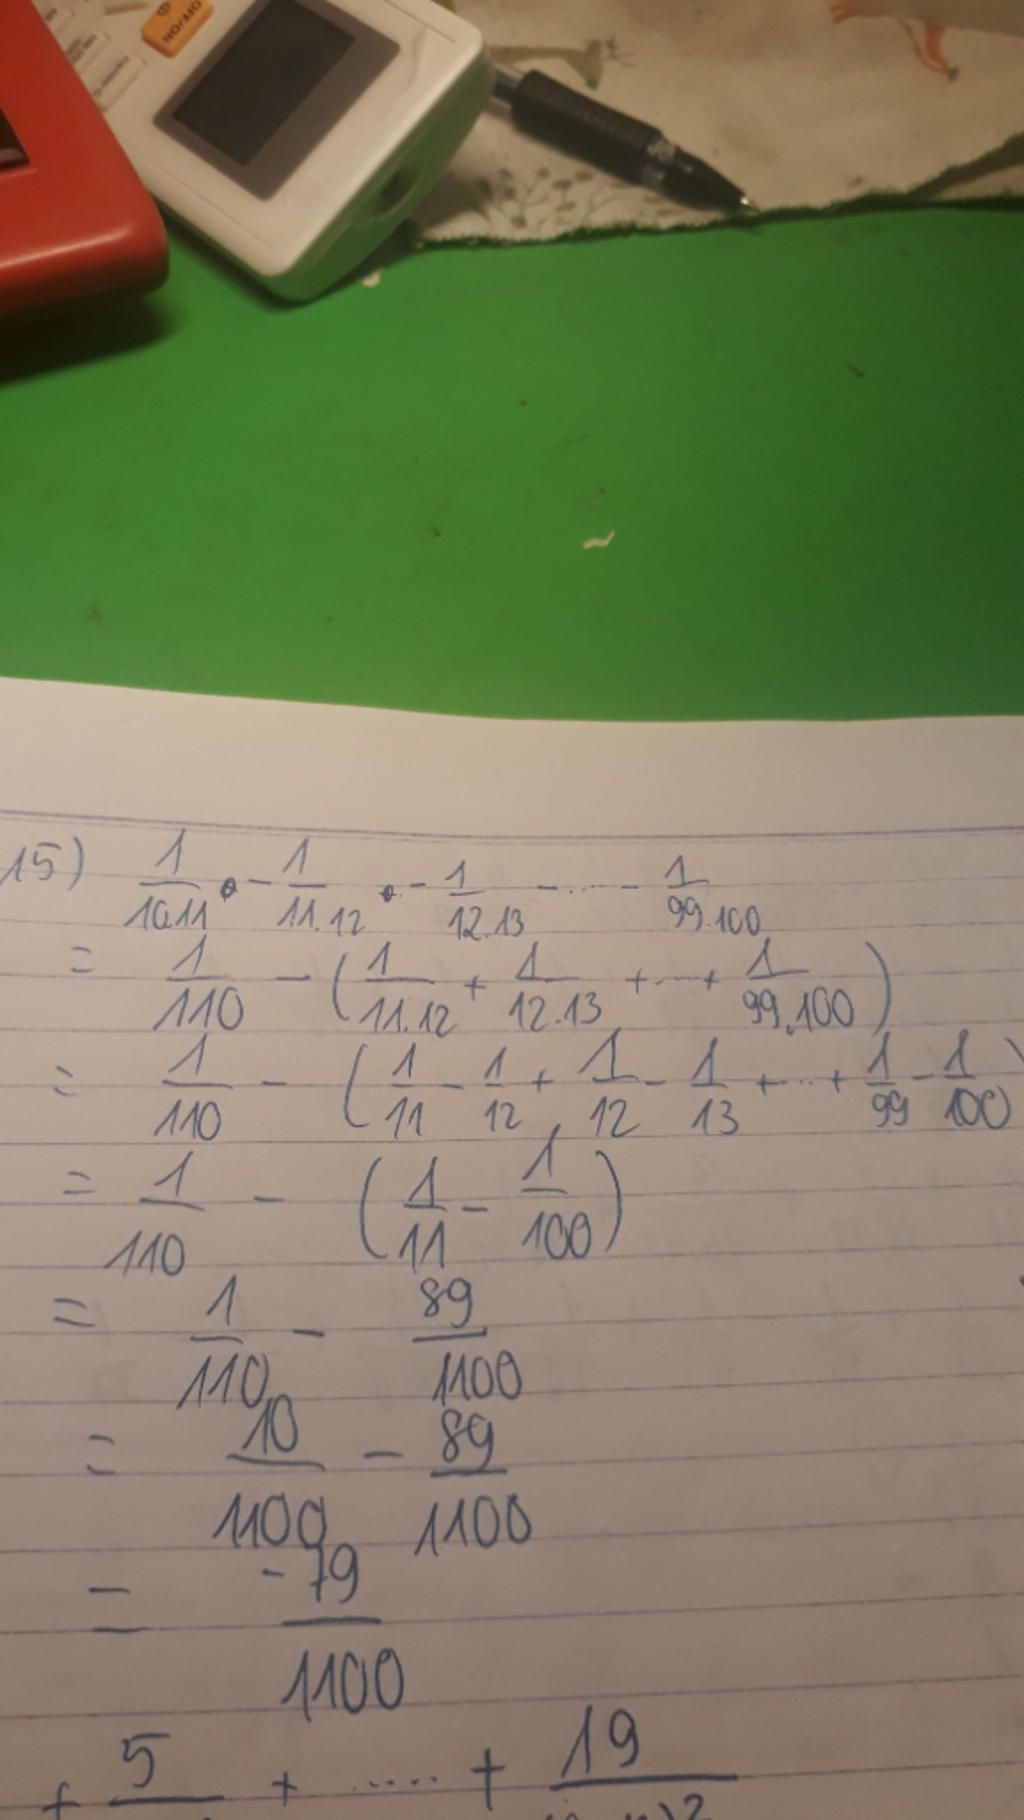 OFF/ON
15) 1/10.11 - 1/11.12 - 1/12.13 - ... - 1/99.100
= 1/110 - (1/11.12 + 1/12.13 + ... + 1/99.100)
= 1/110 - (1/11 - 1/12 + 1/12 - 1/13 + ... + 1/99 - 1/100)
= 1/110 - (1/11 - 1/100)
= 1/110 - 89/1100
= 10/1100 - 89/1100
= -79/1100
+ 5 + ..... + 19